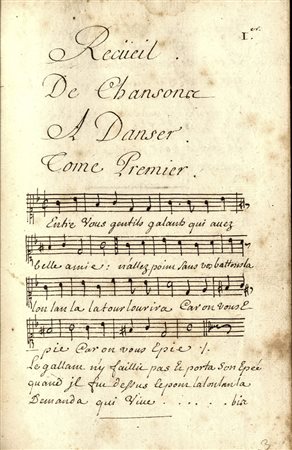 1.er
Recüeil.
De Chansons
A Danser.
Tome Premier.
Entre Vous gentils galants qui avez
belle amie: n'allez point Sans vos battons la
lon lan la la tour lourira Car on vous E
pie Car on vous Epie /.
Le gallant n'y faillie pas le porta Son Epeé
quand jl fut dessus le pont la lon lan la
Demanda qui Vive ..... bis
3